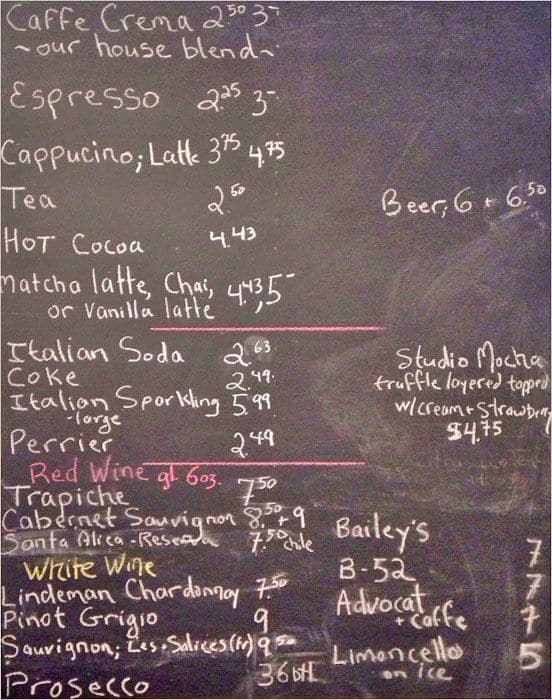 Caffe Crema 2.50 3-
~our house blend~
Espresso 2.25 3-
Cappucino; Latte 3.75 4.75
Tea 2.50
Beer; 6 + 6.50
Hot Cocoa 4.43
Matcha latte, Chai,
or Vanilla latte 4.43, 5-
Italian Soda 2.63
Coke 2.49
Italian Sparkling 5.99
-large
Perrier 2.49
Studio Mocha
truffle layered topped
w/cream + strawberry
$4.75
Red Wine gl. 6oz.
Trapiche 7.50
Cabernet Sauvignon 8.50 + 9
Santa Alica - Reserva 7.50 chile
White Wine
Lindeman Chardonnay 7.50
Pinot Grigio 9
Sauvignon; Les Salices (fr) 9.50
Prosecco 36 btl
Bailey's 7
B-52 7
Advocat
+ caffe 7
Limoncello 5
on ice